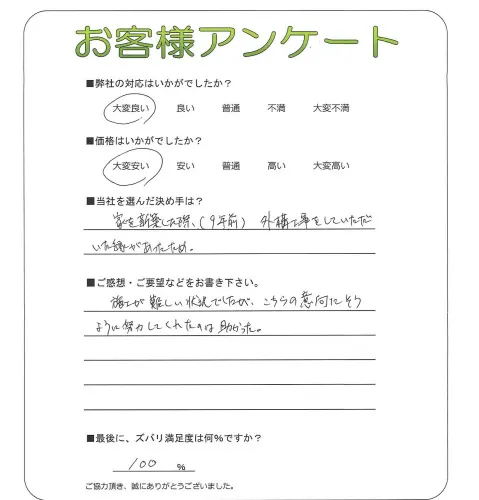 お客様アンケート
■弊社の対応はいかがでしたか？
大変良い 良い 普通 不満 大変不満
■価格はいかがでしたか？
大変安い 安い 普通 高い 大変高い
■当社を選んだ決め手は？
家を新築した際、(9年前) 外構工事をしていただ
いた縁があったため。
■ご感想・ご要望などをお書き下さい。
施工が難しい状況でしたが、こちらの意向にそう
ように努力してくれたのは助かった。
■最後に、ズバリ満足度は何％ですか？
100 ％
ご協力頂き、誠にありがとうございました。